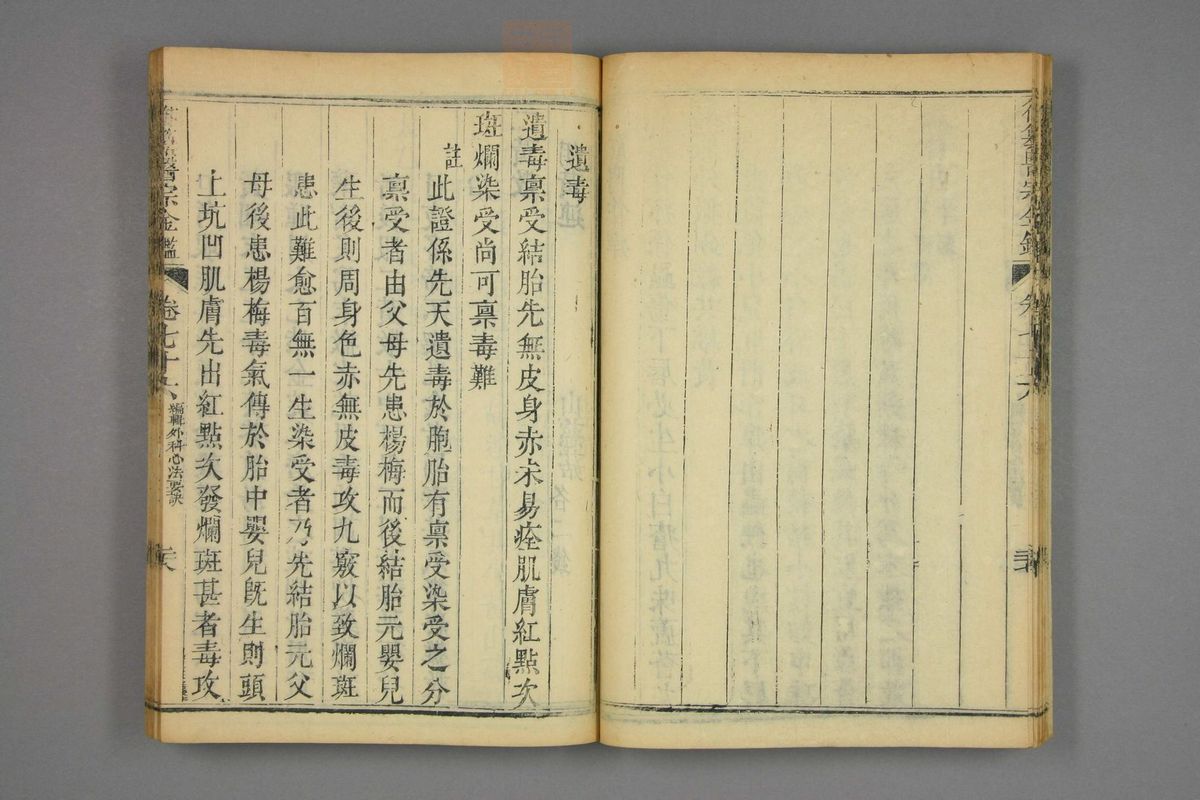 遺毒
遺毒禀受結胎先無皮身赤未易痊肌膚紅點次
斑爛染受尚可禀毒難
註
此證係先天遺毒於胞胎有禀受染受之分
禀受者由父母先患楊梅而後結胎元嬰兒
生後則周身色赤無皮毒攻九竅以致爛斑
患此難愈百無一生染受者乃先結胎元父
母後患楊梅毒氣傳於胎中嬰兒旣生則頭
上坑凹肌膚先出紅點次發爛斑甚者毒攻
醫宗金鑑
卷七十六
編輯外科心法要訣